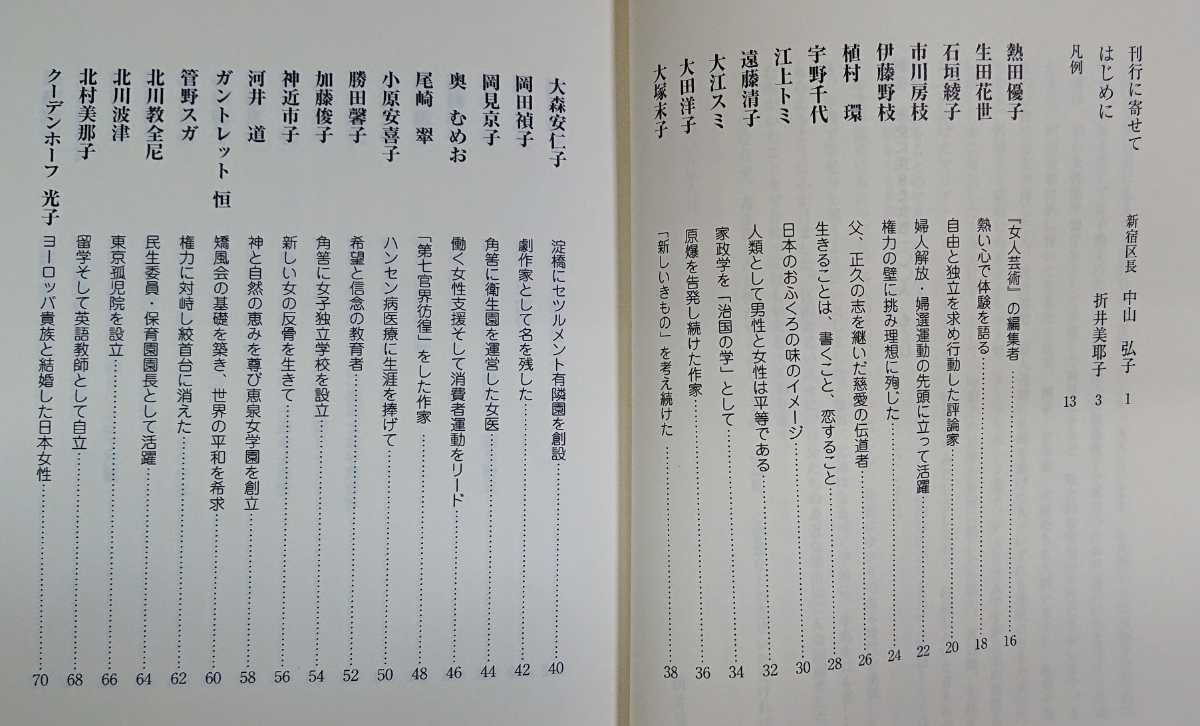 刊行に寄せて 新宿区長 中山 弘子 1
はじめに 折井美耶子 3
凡例 13
熱田優子 『女人芸術』の編集者 16
生田花世 熱い心で体験を語る 18
石垣綾子 自由と独立を求め行動した評論家 20
市川房枝 婦人解放・婦選運動の先頭に立って活躍 22
伊藤野枝 権力の壁に挑み理想に殉じた 24
植村 環 父、正久の志を継いだ慈愛の伝道者 26
宇野千代 生きることは、書くこと、恋すること 28
江上トミ 日本のおふくろの味のイメージ 30
遠藤清子 人類として男性と女性は平等である 32
大江スミ 家政学を「治国の学」として 34
大田洋子 原爆を告発し続けた作家 36
大塚末子 「新しいきもの」を考え続けた 38
大森安仁子 淀橋にセツルメント有隣園を創設 40
岡田禎子 劇作家として名を残した 42
岡見京子 角筈に衛生園を運営した女医 44
奥 むめお 働く女性支援そして消費者運動をリード 46
尾崎 翠 「第七官界彷徨」をした作家 48
小原安喜子 ハンセン病医療に生涯を捧げて 50
勝田馨子 希望と信念の教育者 52
加藤俊子 角筈に女子独立学校を設立 54
神近市子 新しい女の反骨を生きて 56
河井 道 神と自然の恵みを尊び恵泉女学園を創立 58
ガントレット 恒 矯風会の基礎を築き、世界の平和を希求 60
管野スガ 権力に対峙し絞首台に消えた 62
北川教全尼 民生委員・保育園園長として活躍 64
北川波津 東京孤児院を設立 66
北村美那子 留学そして英語教師として自立 68
クーデンホーフ 光子 ヨーロッパ貴族と結婚した日本女性 70